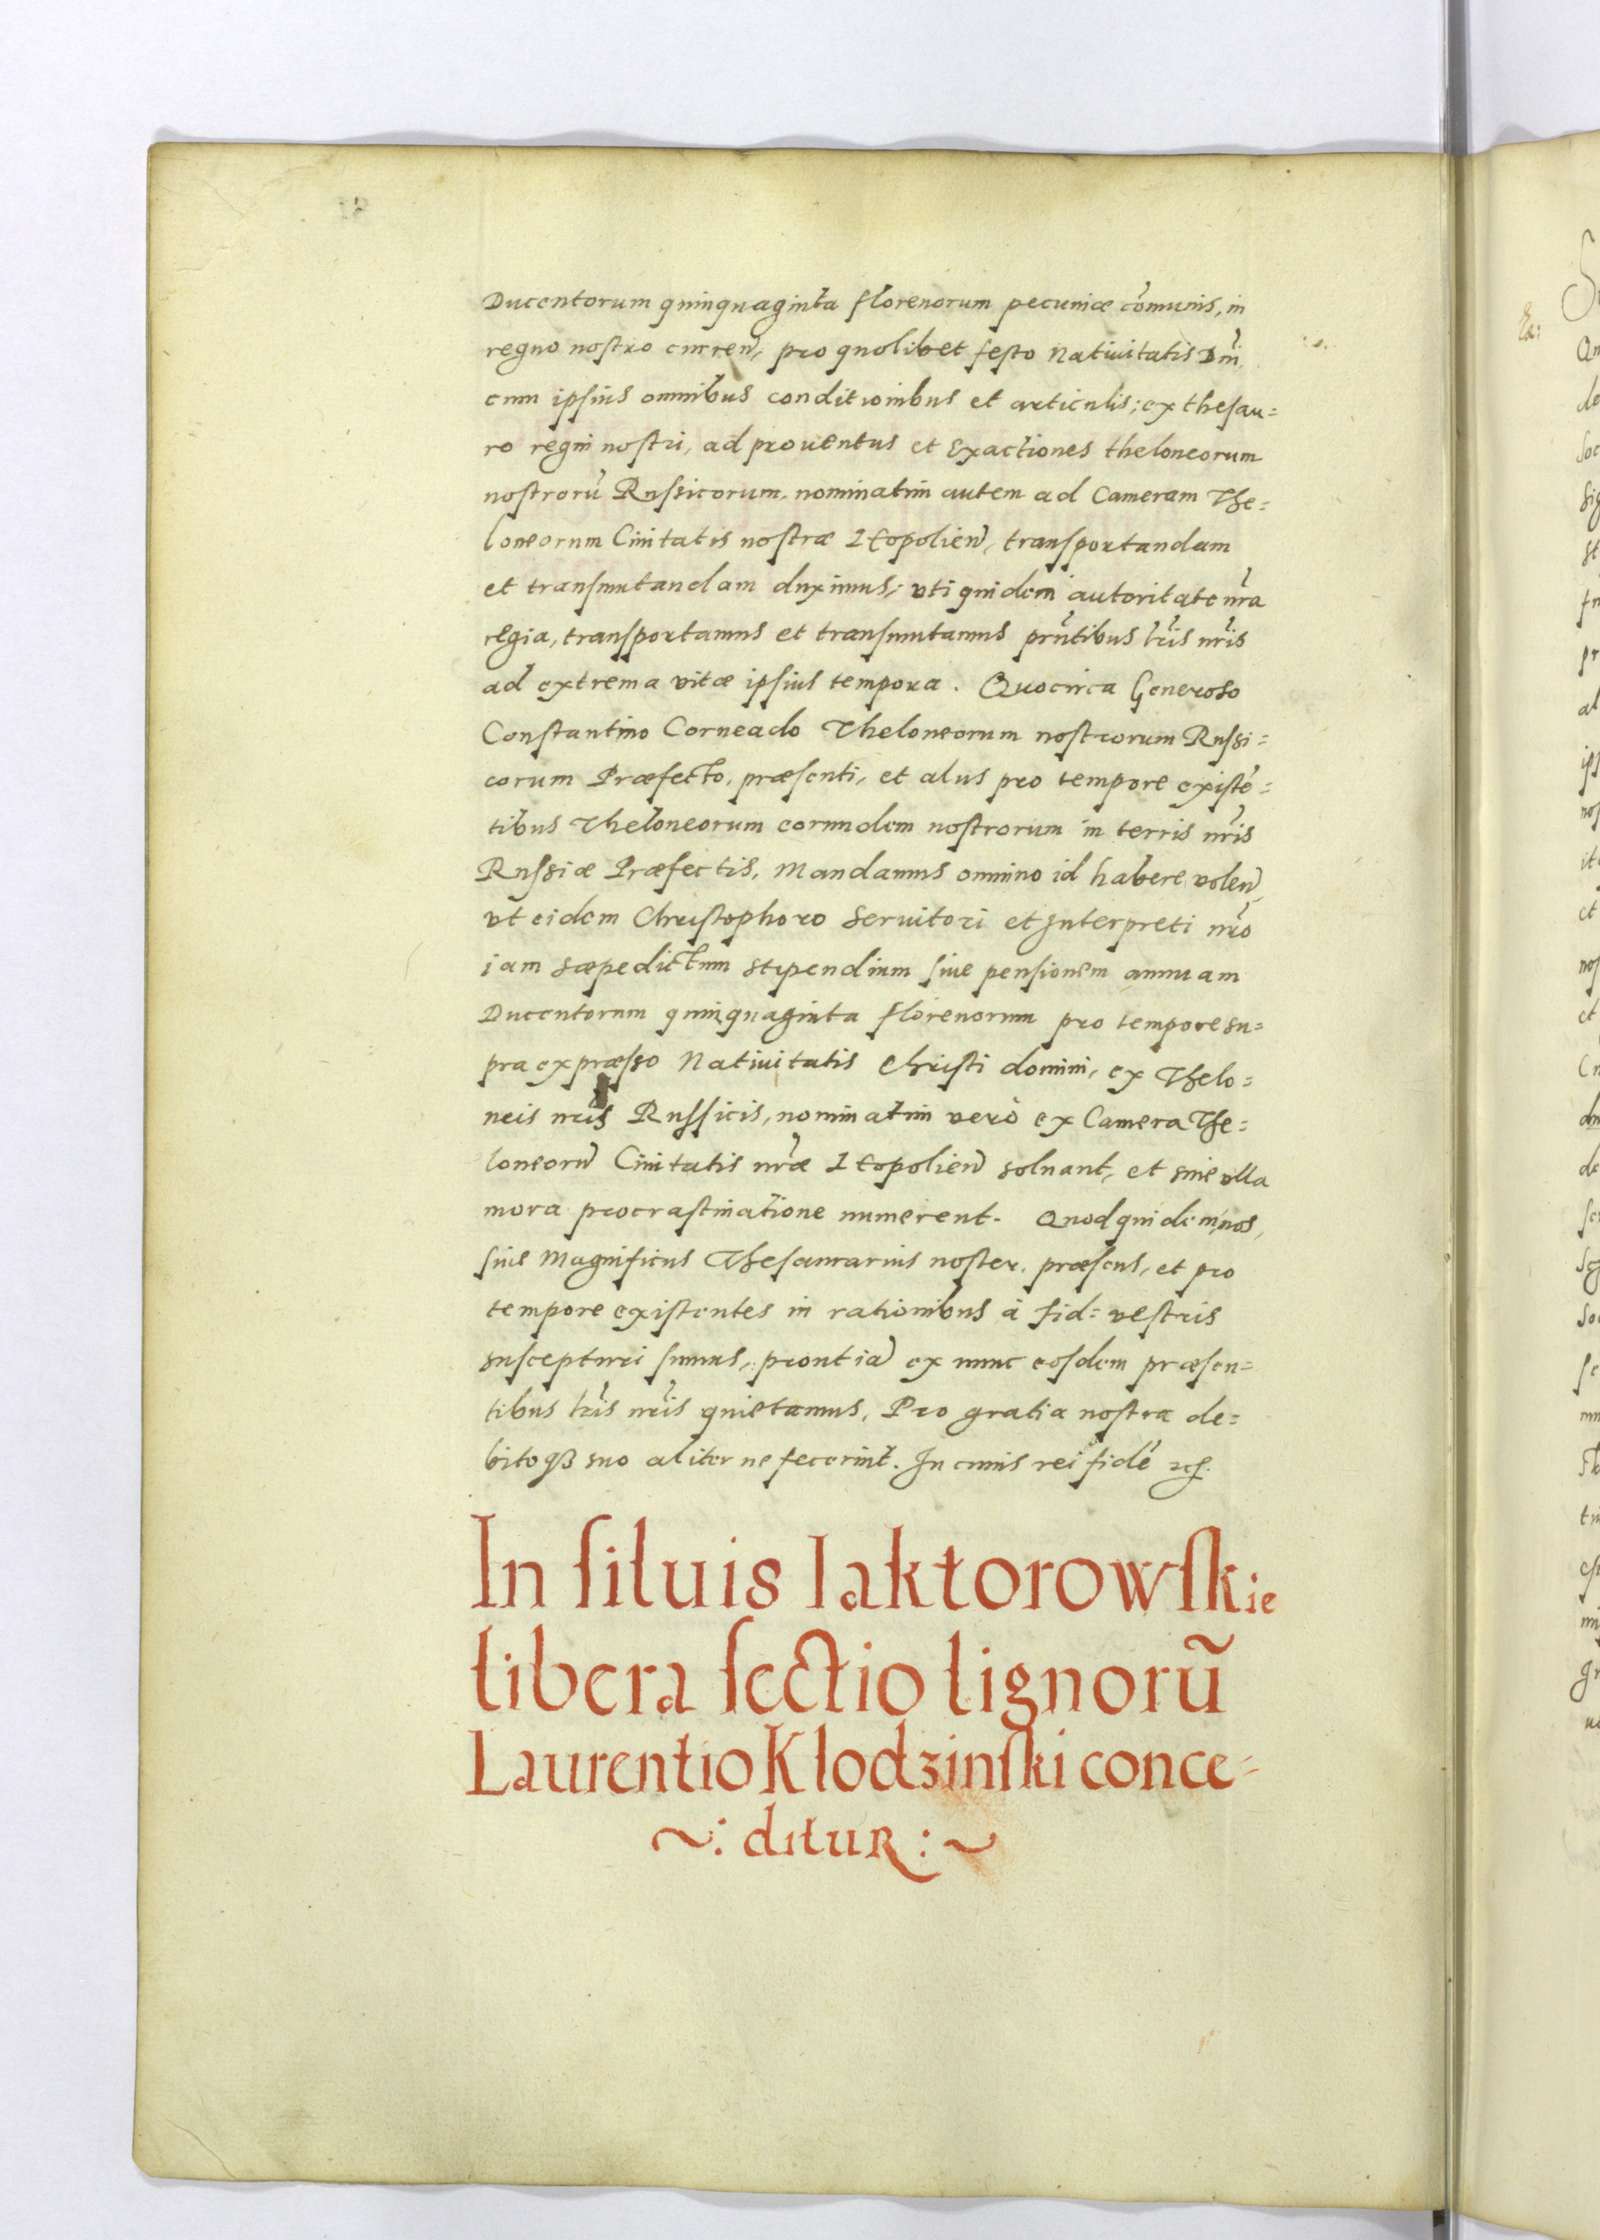 Ducentorum quinquaginta florenorum pecuniæ cõmunis, in
regno nostro curreñ, pro quolibet festo Nativitatis Dñi
cum ipsius omnibus conditionibus et articulis; ex thesau=
ro regni nostri, ad proventus et Exactiones theloneorum
nostrorũ Russicorum, nominatim autem ad Cameram The=
loneorum Civitatis nostræ Leopolieñ, transportandam
et transmutandam duximus, uti quidem autoritate nr̃a
regia, transportamus et transmutamus prñtibus lr̃is nr̃is
ad extrema vitæ ipsius tempora. Quocirca Generoso
Constantino Corneado Theloneorum nostrorum Russi=
corum Præfecto, præsenti, et aliis pro tempore existẽ=
tibus Theloneorum eorundem nostrorum in terris nr̃is
Russiæ Præfectis, Mandamus omnino id habere voleñ,
ut eidem Christophoro Servitori et Interpreti nr̃o
iam sæpedictum stipendium sive pensionem annuam
Ducentorum quinquaginta florenorum pro tempore su=
pra expræsso Nativitatis Christi domini, ex Thelo=
neis nr̃is Russicis, nominatim verò ex Camera The=
loneorũ Civitatis nr̃æ Leopolieñ solvant, et sine ulla
mora procrastinatione numerent. Quod quidem nos,
sive Magnificus Thesaurarius noster, præsens, et pro
tempore existentes in rationibus à fid= vestris
suscepturi sumus, prout iã ex nunc eosdem præsen=
tibus lr̃is nr̃is quietamus, Pro gratia nostra de=
bitoqꝫ suo aliter ne fecerint. In cuius rei fidẽ etc.
In siluis Iaktorowskie
libera sectio lignorũ
Laurentio Klodzinski conce-
~: ditur :~
Ex: